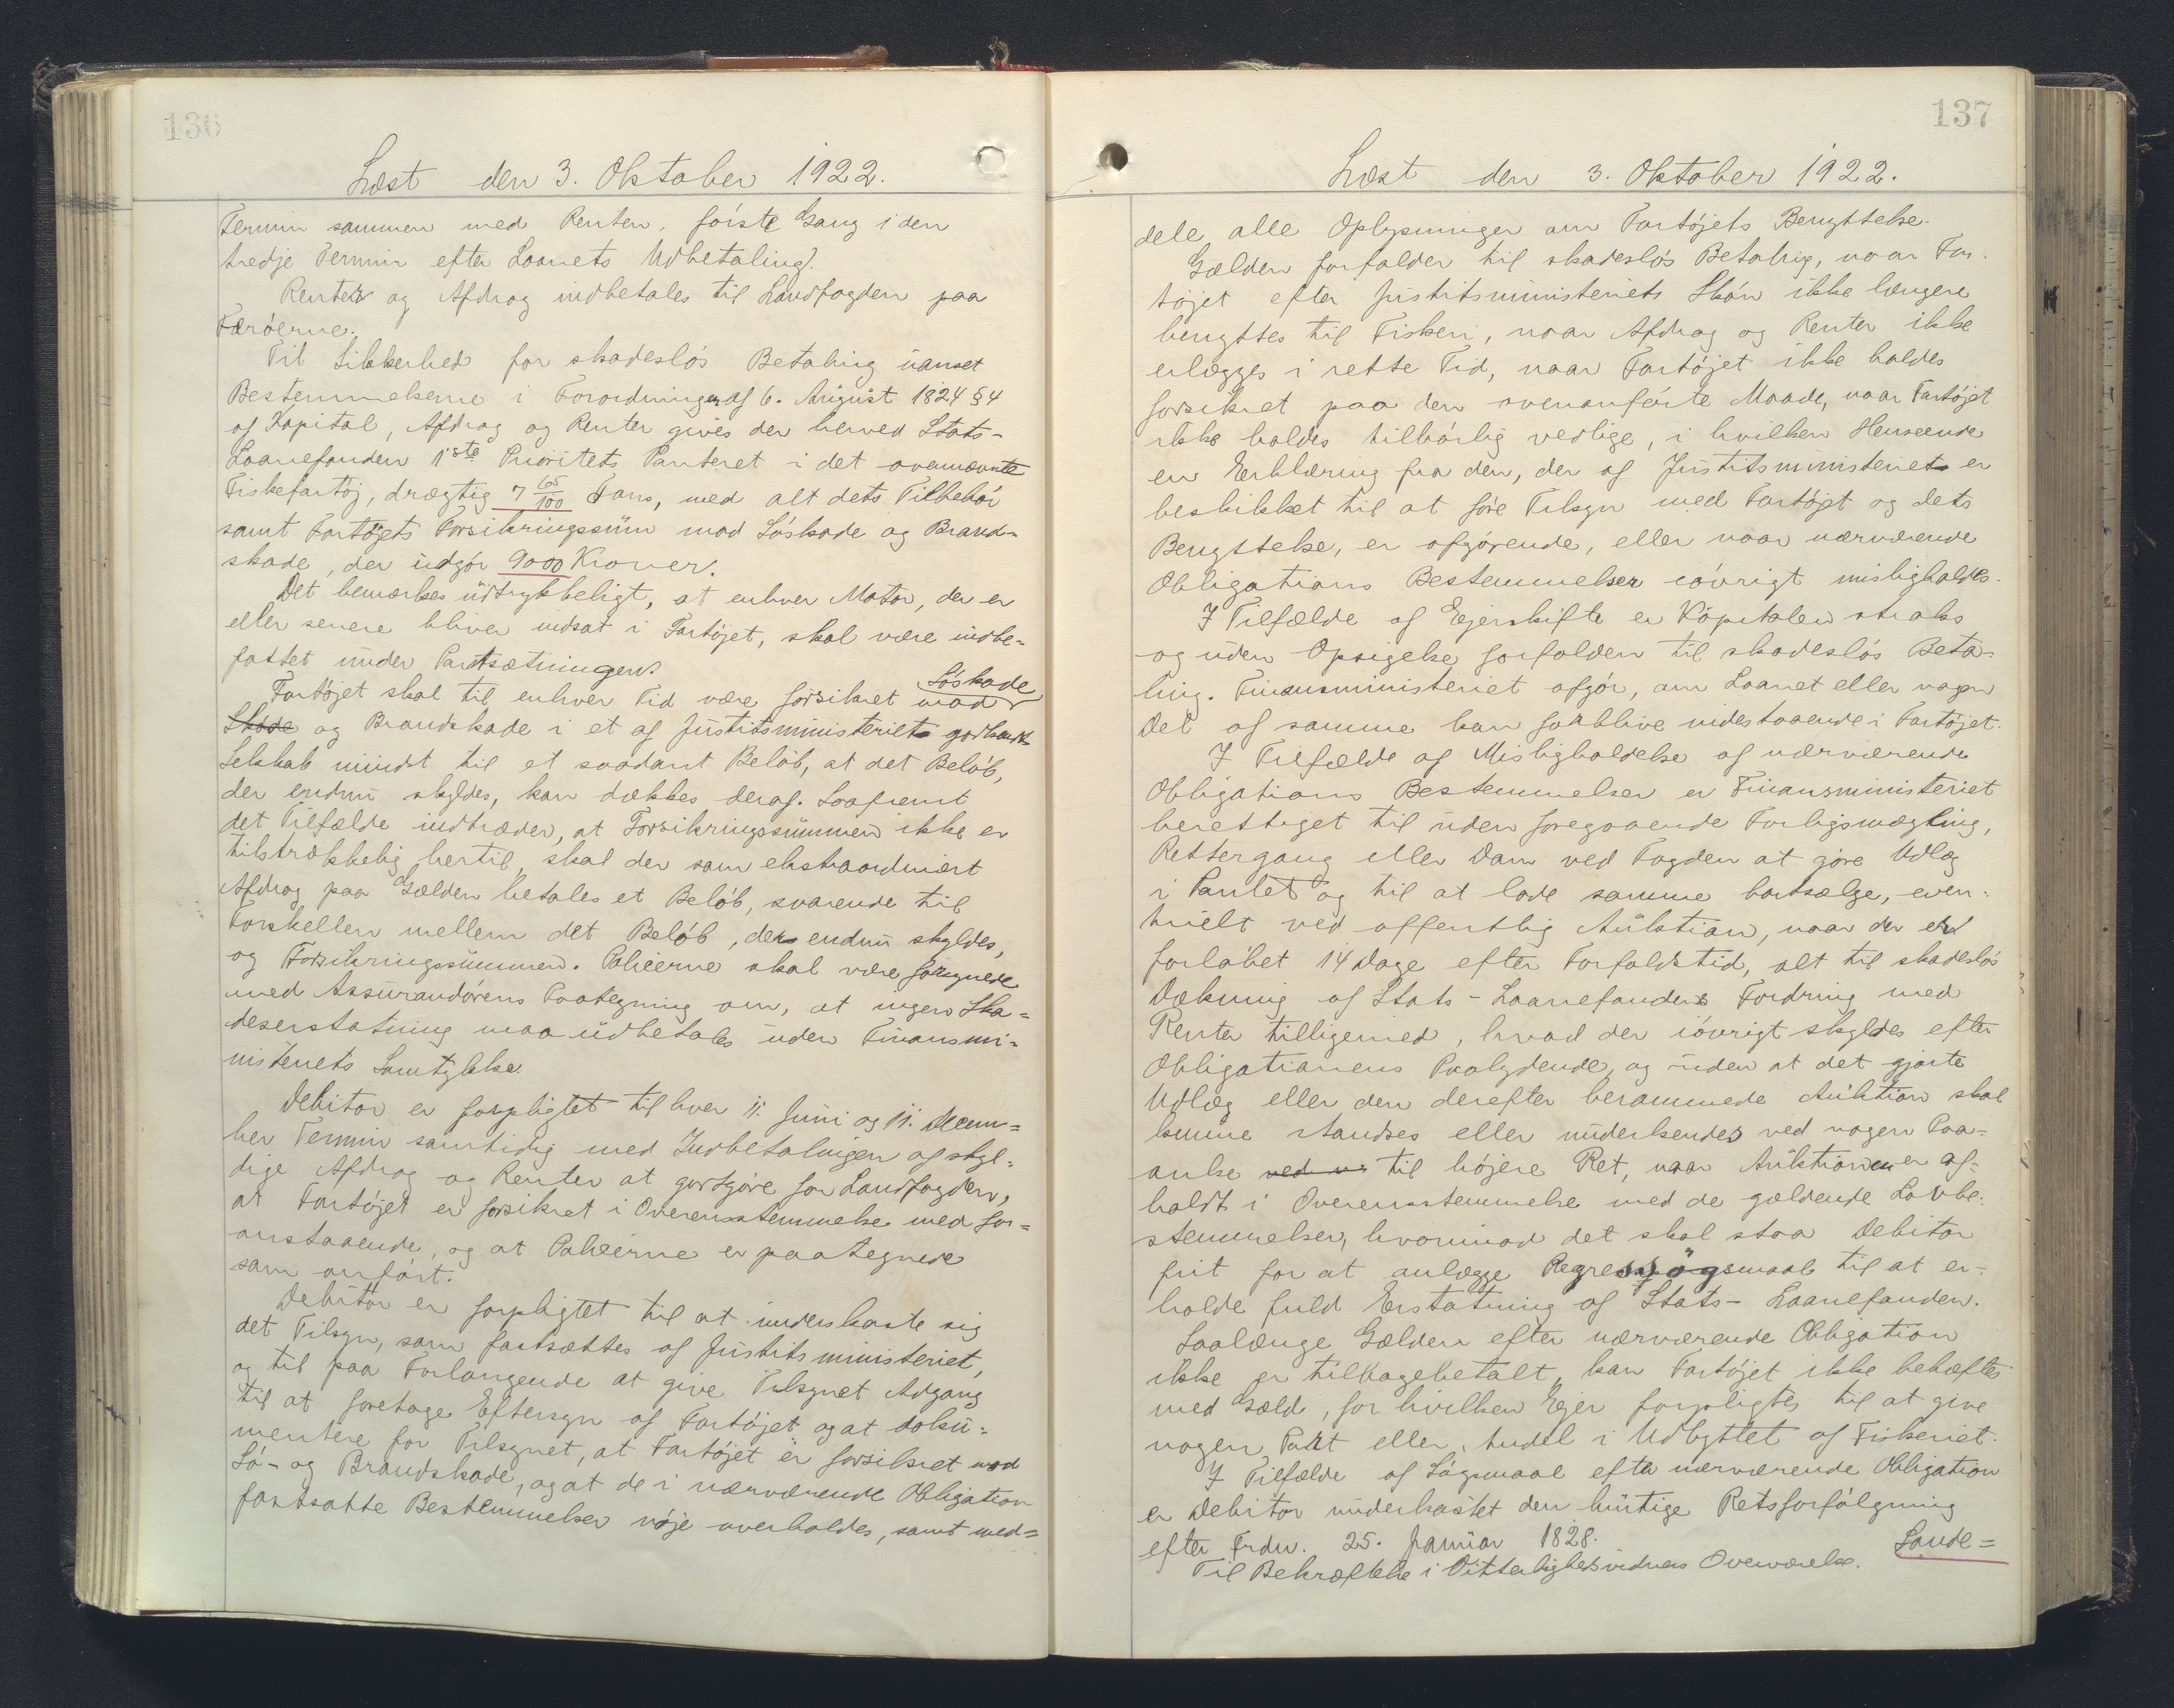 136
Læst den 3. Oktober 1922.
Termin sammen med Renten, første Gang i den
tredje Termin efter Laanets Udbetaling.
Renter og Afdrag indbetales til Landfogden paa
Færøerne.
Til Sikkerhed for skadesløs Betaling uanset
Bestemmelserne i Forordningen af 6. August 1824 § 4
af Kapital, Afdrag og Renter gives der herved Stats-
Laanefonden 1ste Prioritets Panteret i det ovennævnte
Fiskefartøj, drægtig 7 65/100 Tons, med alt dets Tilbehør
samt Fartøjets Forsikringssum mod Søskade og Brand-
skade, der udgør 9000 Kroner.
Det bemærkes udtrykkeligt, at enhver Motor, der er
eller senere bliver indsat i Fartøjet, skal være indbe-
fattet under Pantsætningen.
Fartøjet skal til enhver Tid være forsikret mod Søskade
Skade og Brandskade i et af Justitsministeriet godkendt
Selskab mindst til et saadant Beløb, at det Beløb,
der endnu skyldes, kan dækkes deraf. Saafremt
det Tilfælde indtræder, at Forsikringssummen ikke er
tilstrækkelig hertil, skal der som ekstraordinært
Afdrag paa Gælden betales et Beløb, svarende til
Forskellen mellem det Beløb, der endnu skyldes,
og Forsikringssummen. Policerne skal være forsynede
med Assurandørens Paategning om, at ingen Ska=
deserstatning maa udbetales uden Finansmi=
nisteriets Samtykke.
Debitor er forpligtet til hver 11. Juni og 11. Decem=
ber Termin samtidig med Indbetalingen af skyl=
dige Afdrag og Renter at godtgøre for Landfogden,
at Fartøjet er forsikret i Overensstemmelse med for=
anstaaende, og at Policerne er paategnede
som anført.
Debitor er forpligtet til at underkaste sig
det Tilsyn, som fastsættes af Justitsministeriet,
og til paa Forlangende at give Tilsynet Adgang
til at foretage Eftersyn af Fartøjet og at doku=
mentere for Tilsynet, at Fartøjet er forsikret mod
Sø- og Brandskade, og at de i nærværende Obligation
fastsatte Bestemmelser nøje overholdes, samt med=
137
Læst den 3. Oktober 1922.
dele alle Oplysninger om Fartøjets Benyttelse.
Gælden forfalder til skadesløs Betaling, naar Far-
tøjet efter Justitsministeriets Skøn ikke længere
benyttes til Fiskeri, naar Afdrag og Renter ikke
erlægges i rette Tid, naar Fartøjet ikke holdes
forsikret paa den ovenanførte Maade, naar Fartøjet
ikke holdes tilbørlig vedlige, i hvilken Henseende
en Erklæring fra den, der af Justitsministeriet er
beskikket til at føre Tilsyn med Fartøjet og dets
Benyttelse, er afgørende, eller naar nærværende
Obligations Bestemmelser iøvrigt misligholdes.
I Tilfælde af Ejerskifte er Kapitalen straks
og uden Opsigelse forfalden til skadesløs Beta-
ling. Finansministeriet afgør, om Laanet eller nogen
Del af samme kan forblive indestaaende i Fartøjet.
I Tilfælde af Misligholdelse af nærværende
Obligations Bestemmelser er Finansministeriet
berettiget til uden foregaaende Forligsmægling,
Rettergang eller Dom ved Fogden at gøre Udlæg
i Pantet og til at lade samme bortsælge, even-
tuelt ved offentlig Auktion, naar der er
forløbet 14 Dage efter Forfaldstid, alt til skadesløs
Dækning af Stats-Laanefondens Fordring med
Renter tilligemed, hvad der iøvrigt skyldes efter
Obligationens Paalydende, og uden at det gjorte
Udlæg eller den derefter berammede Auktion skal
kunne standses eller underkendes ved nogen Paa-
anke ved n til højere Ret, naar Auktionen er af-
holdt i Overensstemmelse med de gældende Lovbe-
stemmelser, hvorimod det skal staa Debitor
frit for at anlægge Regressøgsmaal til at er-
holde fuld Erstatning af Stats-Laanefonden.
Saalænge Gælden efter nærværende Obligation
ikke er tilbagebetalt, kan Fartøjet ikke behæftes
med Gæld, for hvilken Ejer forpligtes til at give
nogen Part eller Andel i Udbyttet af Fiskeriet.
I Tilfælde af Søgsmaal efter nærværende Obligation
er Debitor underkastet den hurtige Retsforfølgning
efter Frdn. 25. Januar 1828.
Til Bekræftelse i Vitterlighedsvidners Overværelse.
Sande=